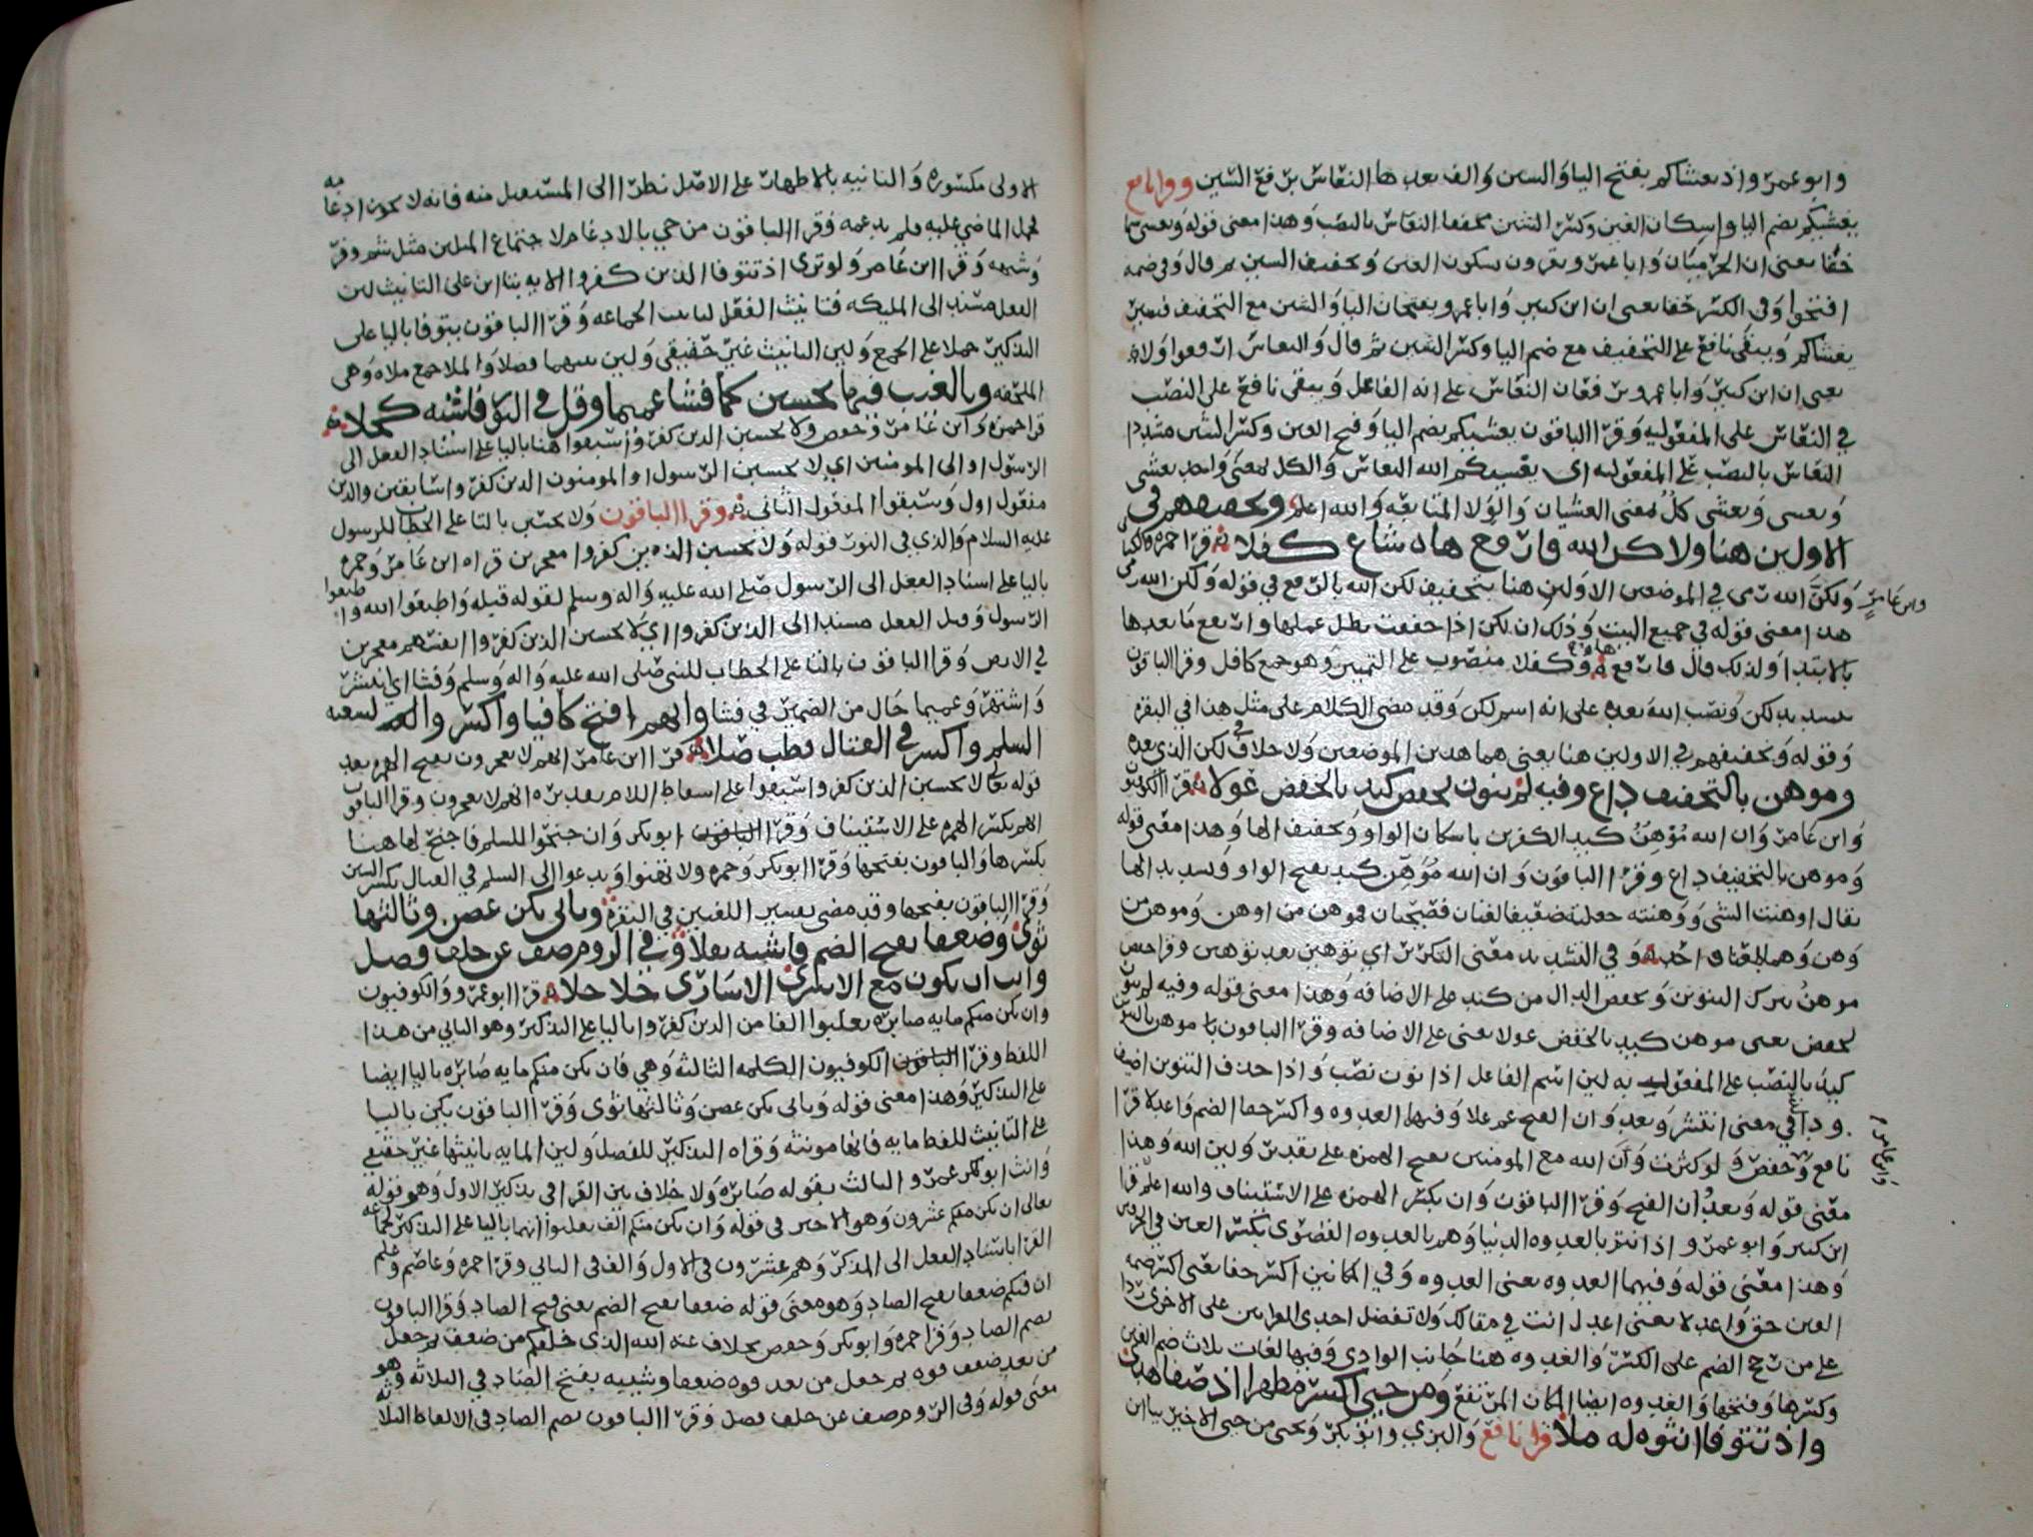 وابو عمرو اذ يغشاكم بفتح اليا والشين والف بعدها النعاس برفع السين وقرا نافع
يغشيكم بضم اليا واسكان الغين وكسر الشين مخففا النعاس بالنصب وهذا معنى قوله ويغشى سما
خفا يعني ان الحرميان وابا عمرو يقرون بسكون الغين وتخفيف الشين ثم قال وفي ضمه
افتحوا وفي الكسر حقا يعني ان ابن كثير وابا عمرو يفتحان اليا والشين مع التخفيف فيصير
يغشاكم ويبقى نافع على التخفيف مع ضم اليا وكسر الشين ثم قال والنعاس ارفعوا ولا
يعني ان ابن كثير وابا عمرو يرفعان النعاس على انه الفاعل ويبقى نافع على النصب
في النعاس على المفعوليه وقرا الباقون يغشيكم بضم اليا وفتح الغين وكسر الشين مشددا
النعاس بالنصب على المفعوليه اي يغشيكم الله النعاس والكل بمعنى واحد يغشى
ويغشي ويغشى كل بمعنى الغشيان والولا المتابعه والله اعلم وتخفيفهم في
الاولين هنا ولاكن الله وارفع هاه شاع كفلا قرا حمزه والكسائي
وابن عامر ولكن الله رمى في الموضعين الاولين هنا بتخفيف لكن الله بالرفع في قوله ولكن الله
هذا معنى قوله في جميع البيت وذلك ان لكن اذا خففت بطل عملها وارتفع ما بعدها
بالابتدا ولذلك قال وارفع هاه وكفلا منصوب على التمييز وهو جمع كافل وقرا الباقون
بتشديد لكن ونصب الله بعده على انه اسم لكن وقد مضى الكلام على مثل هذا في البقره
وقوله وتخفيفهم في الاولين هنا يعني هما هذين الموضعين ولا خلاف في لكن الذي بعده
وموهن بالتخفيف ذاع وفيه لم ينون لحفص كيد بالخفض عولا قرا الكوفيون
وابن عامر وان الله موهن كيد الكفرين باسكان الواو وتخفيف الها وهذا معنى قوله
وموهن بالتخفيف ذاع وقرا الباقون وان الله موهن كيد بفتح الواو وتشديد الها
يقال اوهنت الشي ووهنته جعلته ضعيفا لغتان فصيحتان فموهن من اوهن وموهن من
وهن وهما لمعنى واحد وفي التشديد معنى التكرير اي توهين بعد توهين وقرا حفص
موهن بترك التنوين وبخفض الدال من كيد على الاضافه وهذا معنى قوله وفيه لم ينون
لحفص يعني موهن كيد بالخفض عولا يعني على الاضافه وقرا الباقون يا موهن بالتنوين
كيد بالنصب على المفعوليه لان اسم الفاعل اذا نون نصب واذا حذف التنوين اضيف
وذاع في معنى انتشر وبعد وان الفتح عم علا وفيهما العدوه واكسر حقا الضم واعدلا قرا
نافع وحفص وابن عامر ولو كثرت وان الله مع المومنين بفتح الهمزه على تقدير ولان الله وهذا
معنى قوله وبعد ان الفتح وقرا الباقون وان بكسر الهمزه على الاستيناف والله اعلم قرا
ابن كثير وابو عمرو اذ انتم بالعدوه الدنيا وهم بالعدوه القصوى بكسر العين في الحرفين
وهذا معنى قوله وفيهما العدوه يعني العدوه وفي المكانين اكسر حقا يعني اكسر ضمه
العين حق واعدلا يعني اعدل انت في مقالك ولا تفضل احدى القراتين على الاخرى ردا
على من رجح الضم على الكسر والعدوه هنا جانب الوادي وفيها لغات ثلاث ضم العين
وكسرها وفتحها والعدوه ايضا المكان المرتفع ومن حيي اكسر مظهرا اذ صفا هدى
واذ تتوفا انثوه له ملا قرا نافع والبزي وابو بكر ويحيى من حيي الاخير بيا ين
الاولى مكسوره والثانيه بالاظهار على الاصل نظرا الى المستقبل منه فانه لا يجوز ادغامه
فحمل الماضي عليه فلم يدغمه وقرا الباقون من حي بالادغام لاجتماع المثلين مثل شم وفر
وشبهه وقرا ابن عامر ولو ترى اذ تتوفا الذين كفروا الايه بتا ين على التانيث لان
الفعل مسند الى المليكه فتانيث الفعل لتانيث الجماعه وقرا الباقون يتوفا باليا على
التذكير حملا على الجمع ولان التانيث غير حقيقي ولان بينهما فصلا والملا جمع ملاه وهي
الملحفه وبالغيب فيها تحسبن كما فشا عميما وقل في النور فاشيه كحلا
قرا حمزه وابن عامر وحفص ولا يحسبن الذين كفروا سبقوا هنا باليا على اسناد الفعل الى
الرسول او الى المومنين اي لا يحسبن الرسول او المومنون الذين كفروا سابقين والذين
مفعول اول وسبقوا المفعول الثاني وقرا الباقون ولا تحسبن بالتا على الخطاب للرسول
عليه السلام والذي في النور قوله ولا تحسبن الذين كفروا معجزين قراه ابن عامر وحمزه
باليا على اسناد الفعل الى الرسول صلى الله عليه واله وسلم لقوله قبله واطيعوا الله واطيعوا
الرسول وقيل الفعل مسند الى الذين كفروا اي لا يحسبن الذين كفروا انفسهم معجزين
في الارض وقرا الباقون بالتا على الخطاب للنبي صلى الله عليه واله وسلم وفشا اي انتشر
واشتهر وعميما حال من الضمير في فشا وانهم افتح كافيا واكسروا لشعبه
السلم واكسر في القتال فطب صلا قرا ابن عامر انهم لا يعجزون بفتح الهمزه بعد
قوله تعالى لا تحسبن الذين كفروا سبقوا على اسقاط اللام بتقديره لانهم لا يعجزون وقرا الباقون
انهم بكسر الهمزه على الاستيناف وقرا الباقون ابو بكر وان جنحوا للسلم فاجنح لها هنا
بكسرها والباقون بفتحها وقرا ابو بكر وحمزه ولا تهنوا وتدعوا الى السلم في القتال بكسر السين
وقرا الباقون بفتحها وقد مضى تفسير اللغتين في البقره وثاني يكن غصن وثالثها
ثوى وضعفا بفتح الضم فاشيه نفلا وفي الروم صف عن خلف فصل
وانث ان يكون مع الاسرى الاسارى حلا حلا قرا ابو عمرو والكوفيون
وان يكن منكم مايه صابره يغلبوا الفا من الذين كفروا باليا على التذكير وهو الثاني من هذا
اللفظ وقرا الباقون الكوفيون الكلمه الثالثه وهي فان يكن منكم مايه صابره باليا ايضا
على التذكير وهذا معنى قوله وثاني يكن غصن وثالثها ثوى وقرا الباقون تكن بالتا
على التانيث للفظ مايه فانها مونثه وقراه التذكير للفصل ولان المايه تانيثها غير حقيقي
وانث ابو عمرو الثالث بقوله صابره ولا خلاف بين القرا في تذكير الاول وهو قوله
تعالى ان يكن منكم عشرون وهو الاخير في قوله وان يكن منكم الف يغلبوا انهما باليا على التذكير لجماعه
القرا باسناد الفعل الى المذكر وهم عشرون في الاول والف في الثاني وقرا حمزه وعاصم وعلم
ان فيكم ضعفا بفتح الصاد وهو معنى قوله ضعفا بفتح الضم يعني فتح الصاد وقرا الباقون
بضم الصاد وقرا حمزه وابو بكر وحفص بخلاف عنه الله الذي خلقكم من ضعف ثم جعل
من بعد ضعف قوه ثم جعل من بعد قوه ضعفا وشيبه بفتح الصاد في الثلاثه وهو
معنى قوله وفي الروم صف عن خلف فصل وقرا الباقون بضم الصاد في الالفاظ الثلاثه